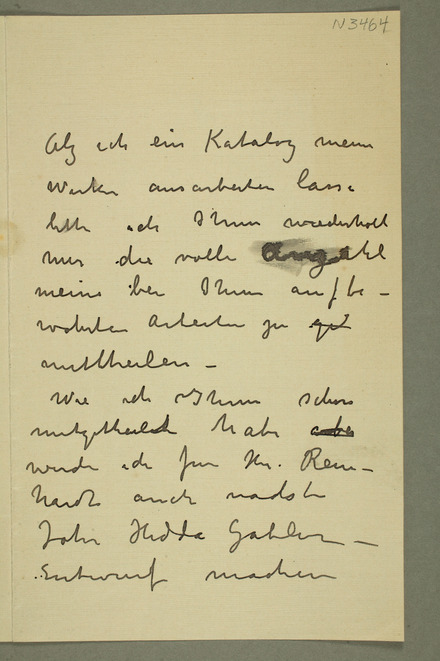 N3464
Alz ich ein Katalog meine
Werke ausarbeiten lasse
bitte ich Ihnen wiederholt
mir die volle Anzahl
meine bei Ihnen aufbe-
wahrten Arbeiten zu
mittheilen -
Wie ich Ihnen schon
mitgetheilt habe
werde ich fur Hr. Rein-
hardt auch nadste
Jahr Hedda Gabler -
Entwurf machen